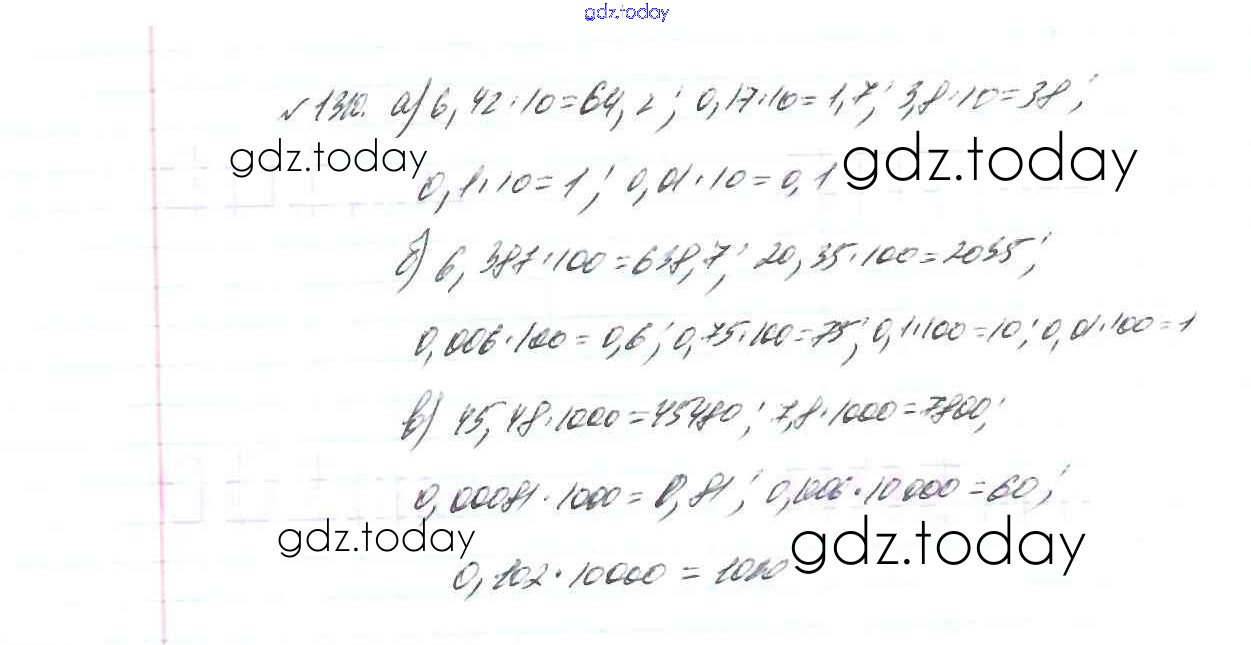 gdz.today
№1310. а) 6,42·10=64,2; 0,17·10=1,7; 3,8·10=38;
gdz.today gdz.today
0,1·10=1; 0,01·10=0,1
б) 6,387·100=638,7; 20,35·100=2035;
0,006·100=0,6; 0,75·100=75; 0,1·100=10; 0,01·100=1
в) 45,48·1000=45480; 7,8·1000=7800;
0,00081·1000=0,81; 0,006·10000=60;
gdz.today gdz.today
0,102·10000=1020